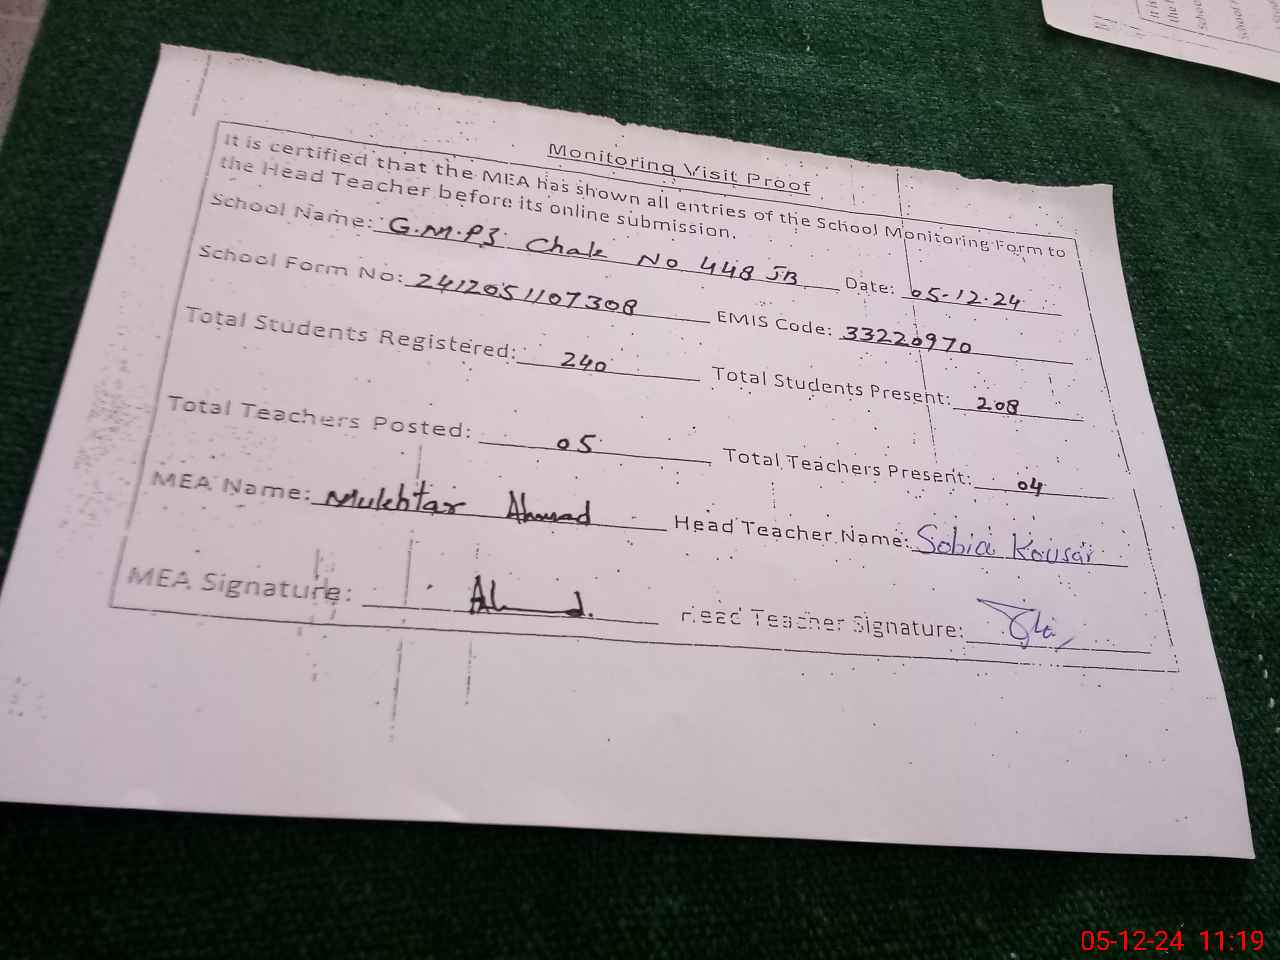 Monitoring Visit Proof
It is certified that the MEA has shown all entries of the School Monitoring Form to
the Head Teacher before its online submission.
School Name: G.M.PS Chak No 448 JB Date: 05-12-24
School Form No: 2412051107308 EMIS Code: 33220970
Total Students Registered: 240 Total Students Present: 208
Total Teachers Posted: 05 Total Teachers Present: 04
MEA Name: Mukhtar Ahmad Head Teacher Name: Sobia Kousar
MEA Signature: Head Teacher Signature:
05-12-24 11:19